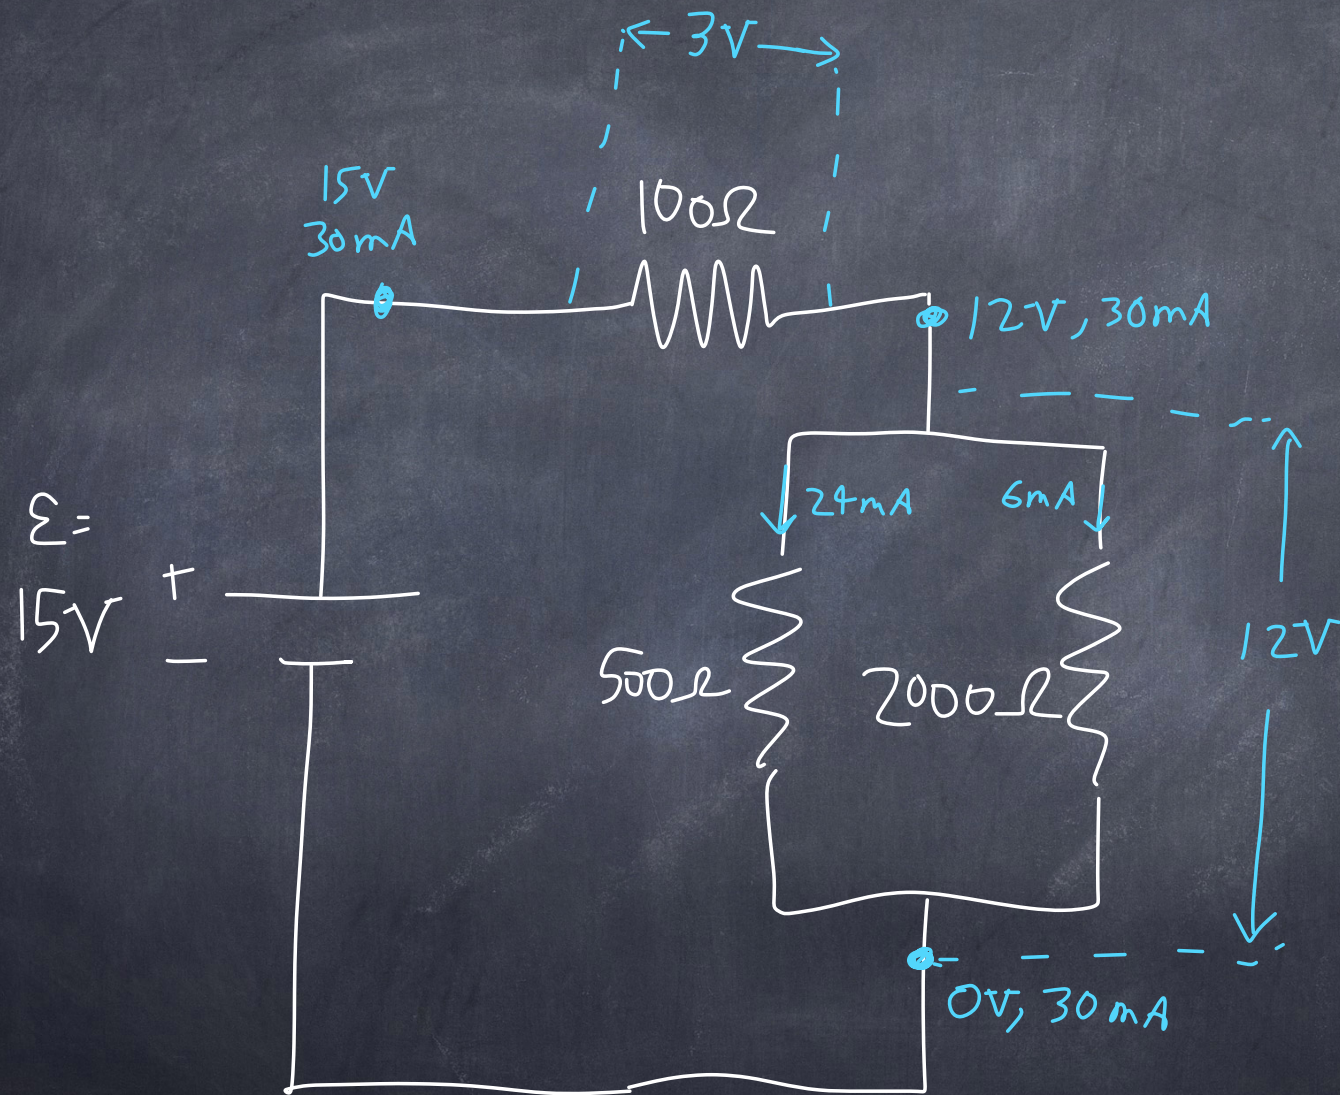 3V
15V
30mA
100Ω
12V, 30mA
24mA
6mA
ε=
15V
+
−
500Ω
2000Ω
12V
0V, 30mA